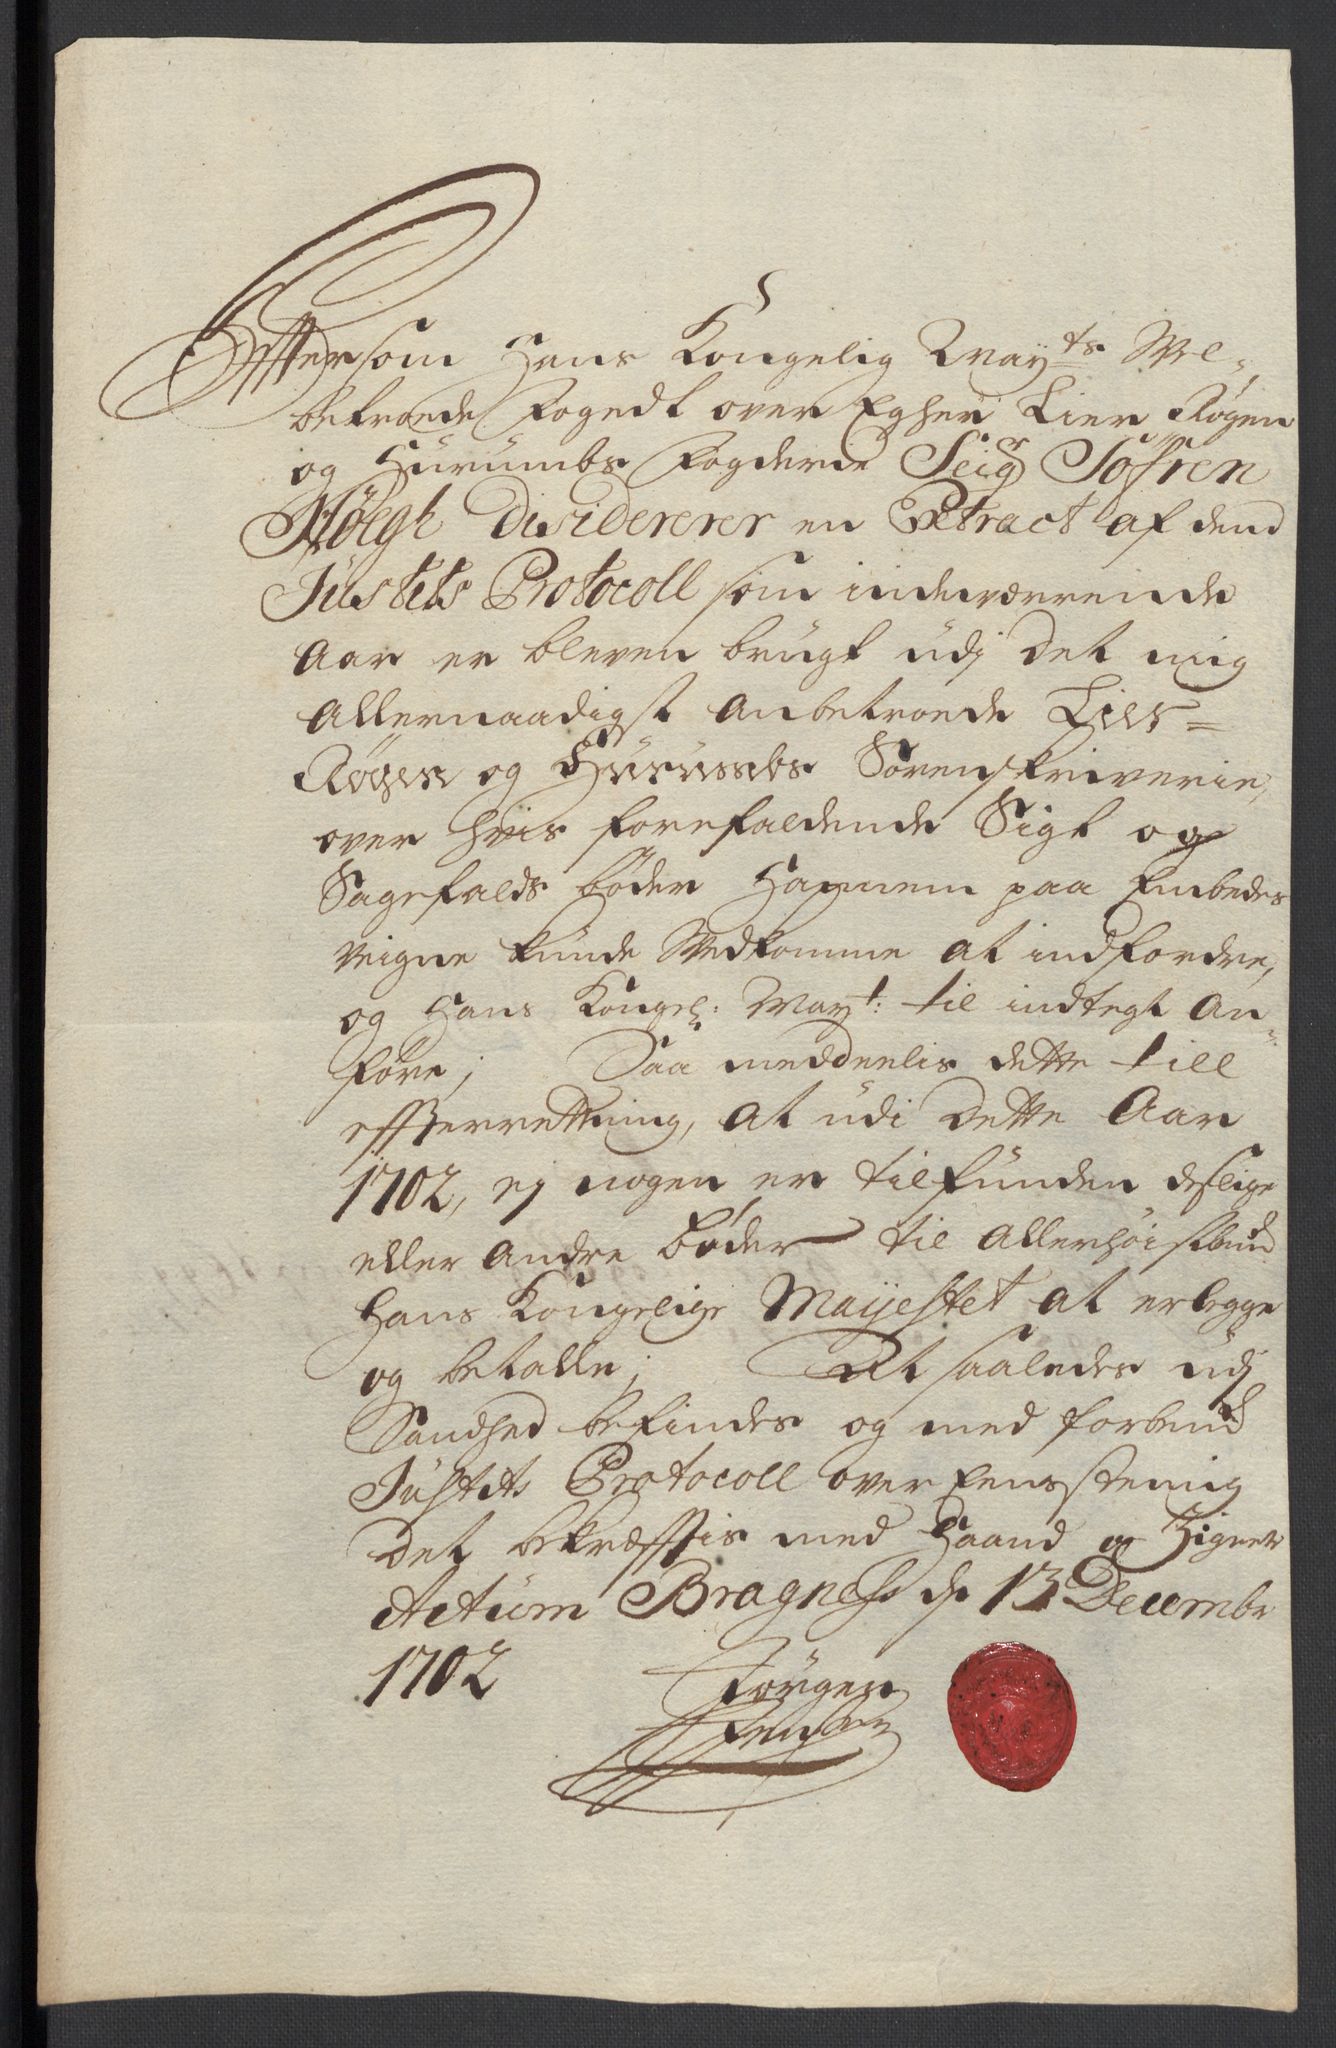 Efftersom Hans Kongelig May:ts Wel-
betroede Fogedt over Egher Lier Røgen
og Hurumbs Fogderie Seigr Søfren
Høegh Disidererer en Extract af dend
Justits Protocoll som indeværrende
Aar er bleven brugt udj det mig
Allernaadigst Anbetroede Lier-
Røgen og Hurumbs Sorenskriverie,
over hvis forefaldende Sigt og
Sagefalds bøder Hannem paa Embedes
veigne kunde Vedkomme at indfordre,
og Hans Kongel: May:t til indtegt An-
føre; Saa meddeelis dette till
effterrettning, at udi dette Aar
1702, ej nogen er tilfunden deslige
eller Andre bøder til Allerhøistbemd
Hans Kongelige Mayestet at erlegge
og betalle; At saaledes udj
Sandhed befindes og med forbemd
Justits Protocoll over Eensstemig
det bekræfftis med Haand og Zignet
Actum Bragness d 13 Decembr
1702
Jørgen
Jensen